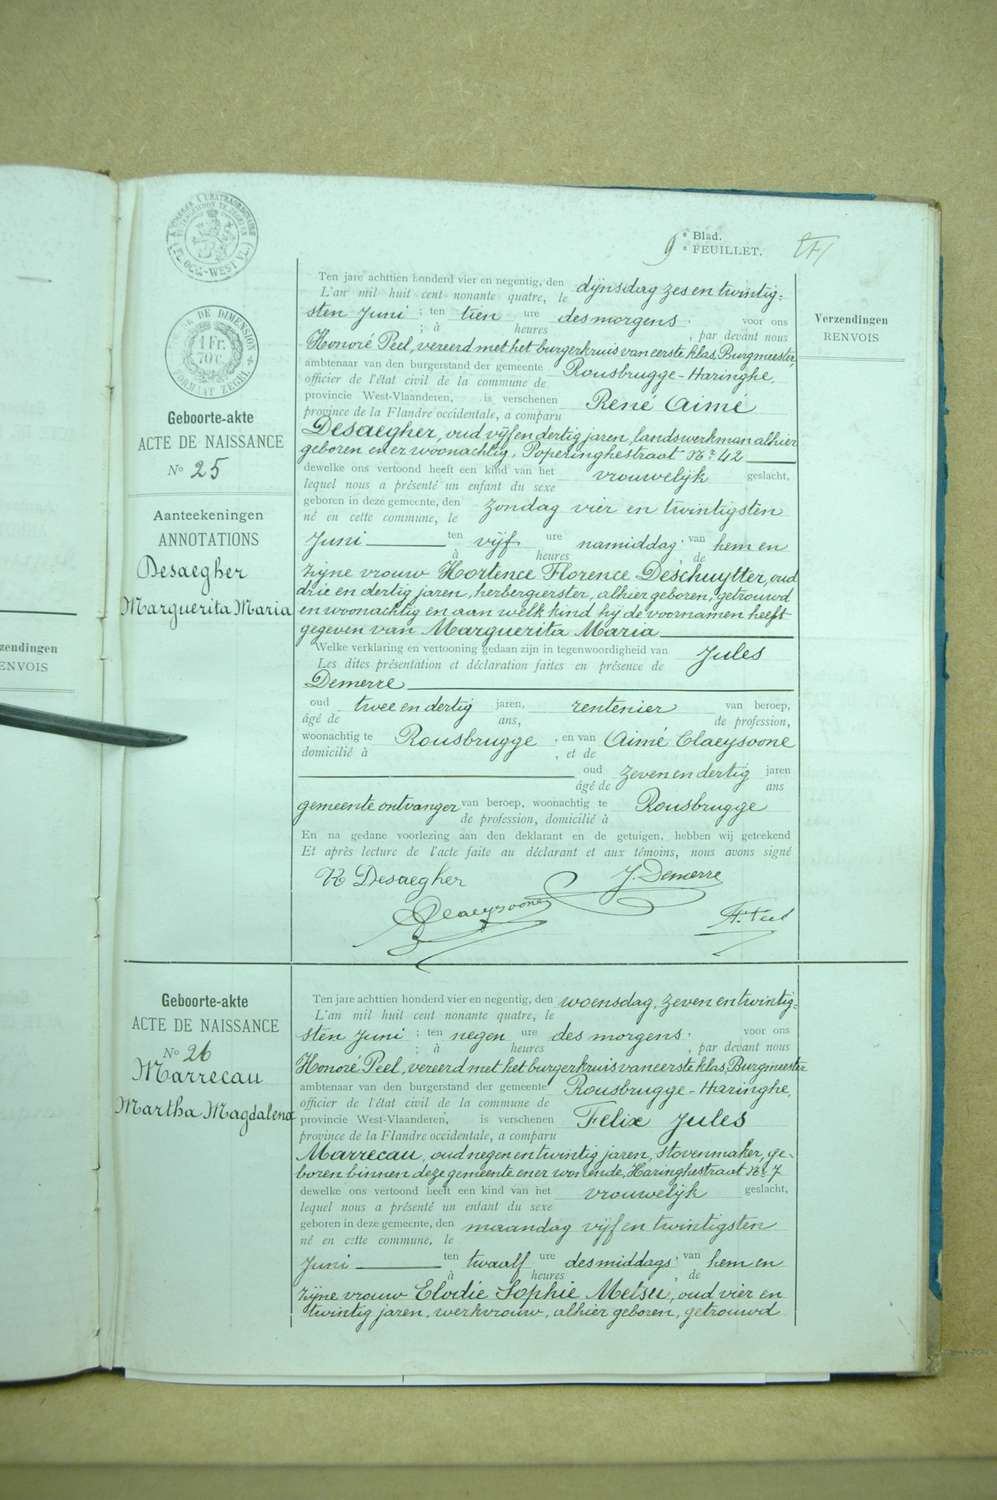 9e Blad.
FEUILLET.
TIMBRE DE DIMENSION
1 Fr. 70 C.
FORMAAT ZEGEL
Verzendingen
RENVOIS
Geboorte-akte
ACTE DE NAISSANCE
No 25
Aanteekeningen
ANNOTATIONS
Desaegher
Marguerita Maria
Ten jare achttien honderd vier en negentig, den dijnsdag zes en twintig-
L'an mil huit cent nonante quatre, le
sten Juni ; ten tien ure des morgens voor ons
; à heures , par devant nous
Honoré Peel, vereerd met het burgerkruis van eerste klas, Burgmeester,
ambtenaar van den burgerstand der gemeente Rousbrugge-Haringhe,
officier de l'état civil de la commune de
provincie West-Vlaanderen, is verschenen René Aimé
province de la Flandre occidentale, a comparu
Desaegher, oud vijf en dertig jaren, landswerkman alhier
geboren en er woonachtig, Poperinghestraat No 42
dewelke ons vertoond heeft een kind van het vrouwelijk geslacht,
lequel nous a présenté un enfant du sexe
geboren in deze gemeente, den zondag vier en twintigsten
né en cette commune, le
Juni ten vijf ure namiddag van hem en
à heures , de
zijne vrouw Hortence Florence Deschuytter, oud
drie en dertig jaren, herbergierster, alhier geboren, getrouwd
en woonachtig en aan welk kind hij de voornamen heeft
gegeven van Marguerita Maria
Welke verklaring en vertooning gedaan zijn in tegenwoordigheid van Jules
Les dites présentation et déclaration faites en présence de
Demerre
oud twee en dertig jaren, rentenier van beroep,
âgé de ans, de profession,
woonachtig te Rousbrugge , en van Aimé Claeysoone
domicilié à , et de
oud zeven en dertig jaren
âgé de ans
gemeente ontvanger van beroep, woonachtig te Rousbrugge
de profession, domicilié à
En na gedane voorlezing aan den deklarant en de getuigen, hebben wij geteekend
Et après lecture de l'acte faite au déclarant et aux témoins, nous avons signé
R Desaegher J. Demerre
Claeysoone H. Peel
Geboorte-akte
ACTE DE NAISSANCE
No 26
Marrecau
Martha Magdalena
Ten jare achttien honderd vier en negentig, den woensdag, zeven en twintig-
L'an mil huit cent nonante quatre, le
sten Juni ; ten negen ure des morgens voor ons
; à heures , par devant nous
Honoré Peel, vereerd met het burgerkruis van eerste klas, Burgmeester
ambtenaar van den burgerstand der gemeente Rousbrugge-Haringhe,
officier de l'état civil de la commune de
provincie West-Vlaanderen, is verschenen Felix Jules
province de la Flandre occidentale, a comparu
Marrecau, oud negen en twintig jaren, stovenmaker, ge-
boren binnen deze gemeente en er wonende, Haringhestraat No 7
dewelke ons vertoond heeft een kind van het vrouwelijk geslacht,
lequel nous a présenté un enfant du sexe
geboren in deze gemeente, den maandag vijf en twintigsten
né en cette commune, le
Juni ten twaalf ure des middags van hem en
à heures , de
zijne vrouw Elodie Sophie Metsu, oud vier en
twintig jaren, werkvrouw, alhier geboren, getrouwd